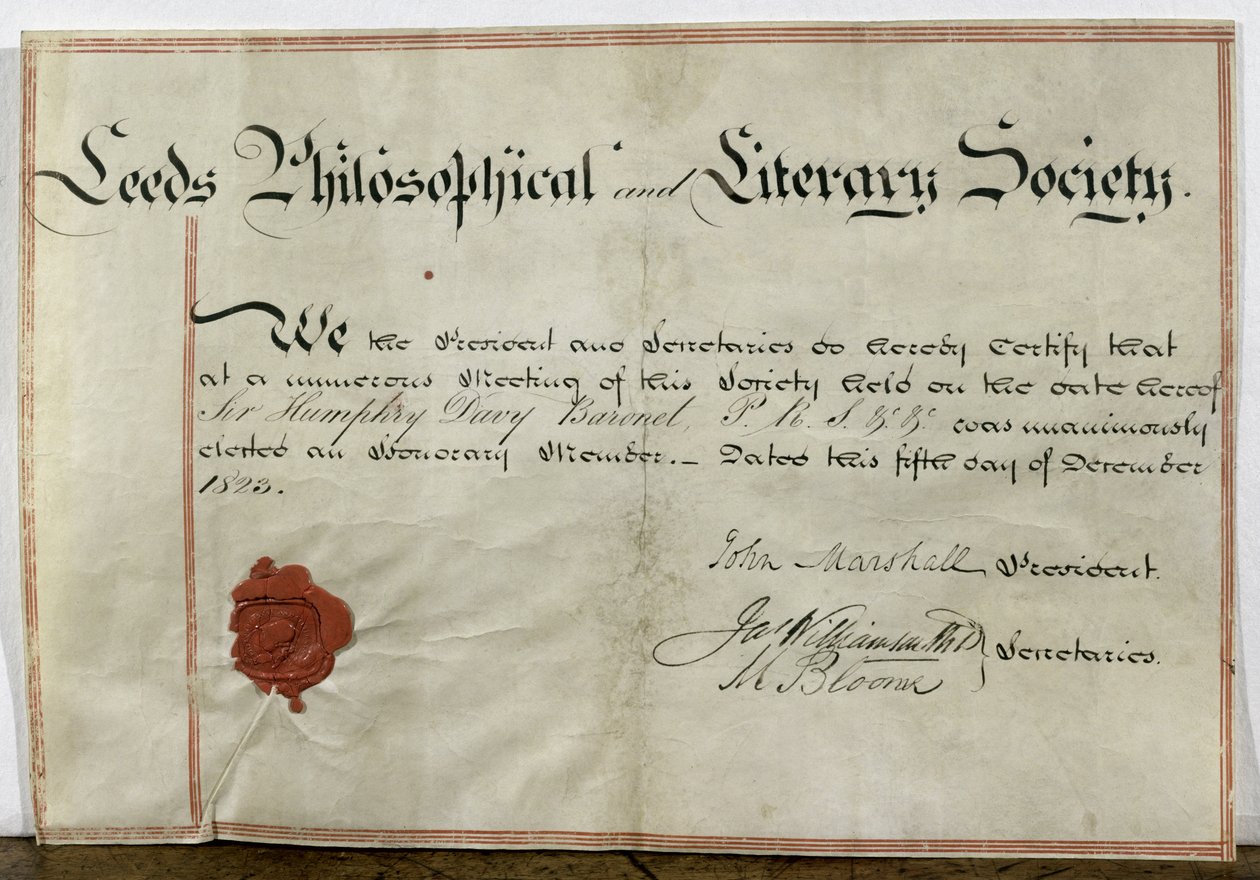 Leeds Philosophical and Literary Society.
We the President and Secretaries do hereby Certify that
at a numerous Meeting of this Society held on the date hereof
Sir Humphry Davy Baronet, P. R. S. &c. &c. was unanimously
elected an Honorary Member. — Dated this fifth day of December
1823.
John Marshall President.
Jas Williamson M D
Secretaries.
M Bloome